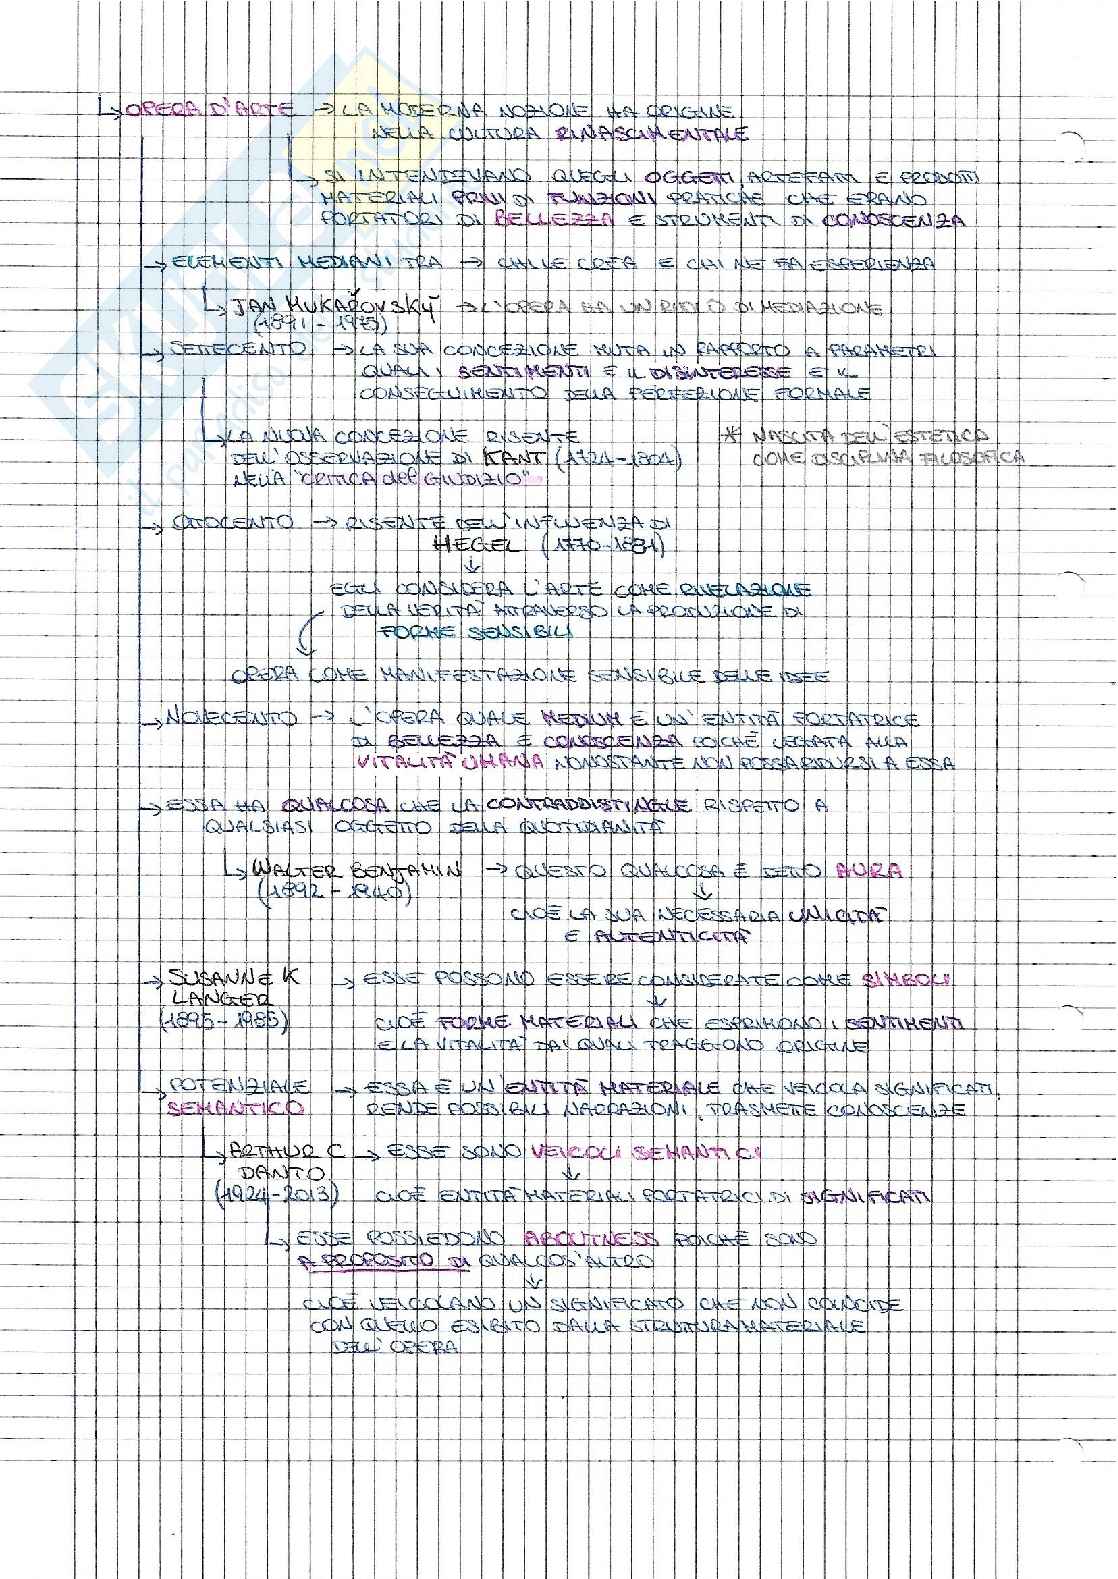 ↳ OPERA D'ARTE → LA MODERNA NOZIONE HA ORIGINE
NELLA CULTURA RINASCIMENTALE
↳ SI INTENDEVANO QUEGLI OGGETTI, ARTEFATTI E PRODOTTI
MATERIALI PRIVI DI FUNZIONI PRATICHE CHE ERANO
PORTATORI DI BELLEZZA E STRUMENTI DI CONOSCENZA
→ ELEMENTI MEDIANI TRA → CHI LE CREA E CHI NE FA ESPERIENZA
↳ JAN MUKAŘOVSKÝ → L'OPERA HA UN RUOLO DI MEDIAZIONE
(1891 - 1975)
→ SETTECENTO → LA SUA CONCEZIONE MUTA IN RAPPORTO A PARAMETRI
QUALI I SENTIMENTI E IL DISINTERESSE E IL
CONSEGUIMENTO DELLA PERFEZIONE FORMALE
↳ LA NUOVA CONCEZIONE RISENTE
* NASCITA DELL'ESTETICA
DELL'OSSERVAZIONE DI KANT (1724-1804)
COME DISCIPLINA FILOSOFICA
NELLA "CRITICA del GIUDIZIO"
→ OTTOCENTO → RISENTE DELL'INFLUENZA DI
HEGEL (1770-1831)
↓
EGLI CONSIDERA L'ARTE COME RIVELAZIONE
DELLA VERITÀ ATTRAVERSO LA PRODUZIONE DI
FORME SENSIBILI
OPERA COME MANIFESTAZIONE SENSIBILE DELLE IDEE
→ NOVECENTO → L'OPERA QUALE MEDIUM È UN'ENTITÀ PORTATRICE
DI BELLEZZA E CONOSCENZA POICHÈ LEGATA ALLA
VITALITÀ UMANA NONOSTANTE NON POSSA RIDURSI A ESSA
→ ESSA HA QUALCOSA CHE LA CONTRADDISTINGUE RISPETTO A
QUALSIASI OGGETTO DELLA QUOTIDIANITÀ
↳ WALTER BENJAMIN → QUESTO QUALCOSA È DETTO AURA
(1892 - 1940)
↓
CIOÈ LA SUA NECESSARIA UNICITÀ
E AUTENTICITÀ
→ SUSANNE K → ESSE POSSONO ESSERE CONSIDERATE COME SIMBOLI
LANGER
↓
(1895 - 1985) CIOÈ FORME MATERIALI CHE ESPRIMONO I SENTIMENTI
E LA VITALITÀ DAI QUALI TRAGGONO ORIGINE
→ POTENZIALE → ESSA È UN'ENTITÀ MATERIALE CHE VEICOLA SIGNIFICATI,
SEMANTICO RENDE POSSIBILI NARRAZIONI, TRASMETTE CONOSCENZE
↳ ARTHUR C → ESSE SONO VEICOLI SEMANTICI
DANTO
↓
(1924-2013) CIOÈ ENTITÀ MATERIALI PORTATRICI DI SIGNIFICATI
↳ ESSE POSSIEDONO ABOUTNESS POICHÈ SONO
A PROPOSITO DI QUALCOS'ALTRO
↓
CIOÈ VEICOLANO UN SIGNIFICATO CHE NON COINCIDE
CON QUELLO ESIBITO DALLA STRUTTURA MATERIALE
DELL'OPERA